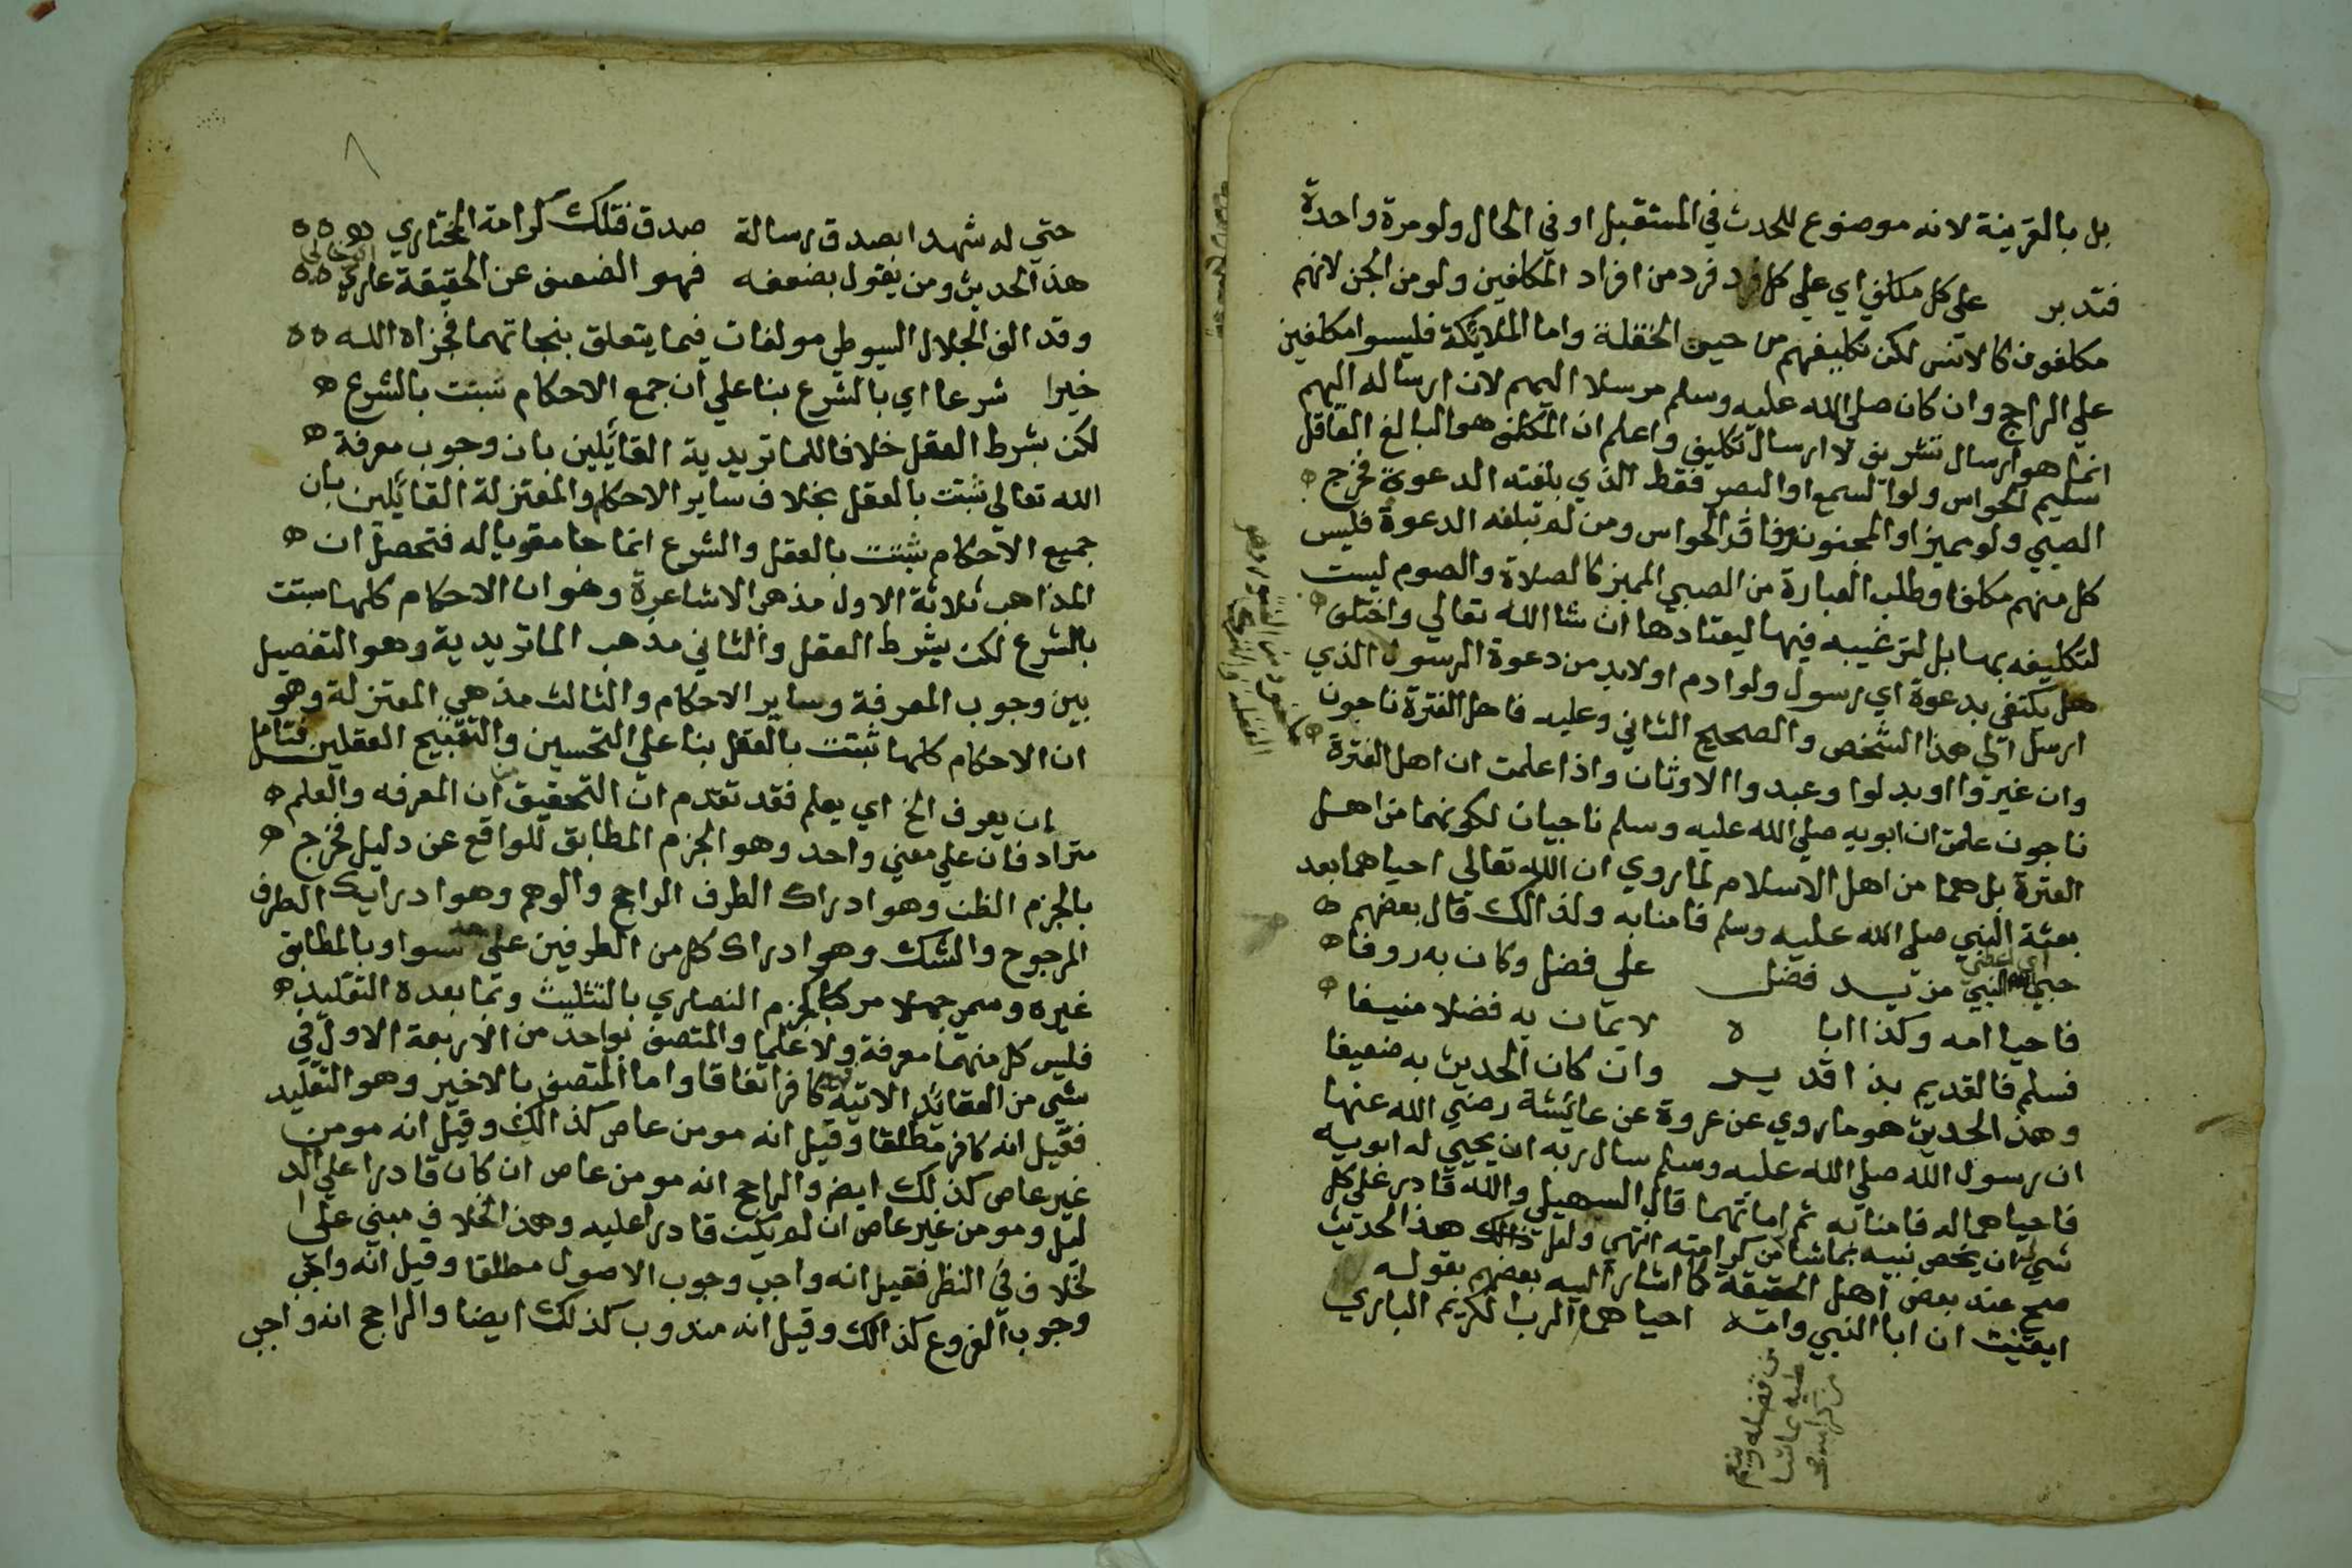 بل بالقرينة لانه موضوع للحدث في المستقبل او في الحال ولو مرة واحدة
فتدبر على كل مكلف اي علي كل فرد فرد من افراد المكلفين ولو من الجن لانهم
مكلفون كالانس لكن تكليفهم من حين الخلقة واما الملائكة فليسوا مكلفين
علي الراجح وان كان صلي الله عليه وسلم مرسلا اليهم لان ارساله اليهم
انما هو ارسال تشريف لا ارسال تكليف واعلم ان المكلف هو البالغ العاقل
سليم الحواس ولو السمع او البصر فقط الذي بلغته الدعوة فخرج
الصبي ولو مميزا والمجنون وفاقد الحواس ومن لم تبلغه الدعوة فليس
كل منهم مكلفا وطلب العبادة من الصبي المميز كالصلاة والصوم ليست
لتكليفه بها بل لترغيبه فيها ليعتادها ان شا الله تعالي واختلف
هل يكتفي بدعوة اي رسول ولو ادم او لابد من دعوة الرسول الذي
ارسل الي هذا الشخص والصحيح الثاني وعليه فاهل الفترة ناجون
وان غيروا او بدلوا وعبدوا الاوثان واذا علمت ان اهل الفترة
ناجون علمت ان ابويه صلي الله عليه وسلم ناجيان لكونهما من اهل
الفترة بل هما من اهل الاسلام لما روي ان الله تعالي احياهما بعد
بعثة النبي صلي الله عليه وسلم فامنا به ولذالك قال بعضهم
اي اعطي
حبي الله النبي مزيد فضل علي فضل وكان به روفا
فاحيا امه وكذا ابا ه لايمان به فضلا منيفا
فسلم فالقديم بذا قدير وان كان الحديث به ضعيفا
وهذا الحديث هو ما روي عن عروة عن عائشة رضي الله عنها
ان رسول الله صلي الله عليه وسلم سال ربه ان يحيي له ابويه
فاحياهما له فامنا به ثم اماتهما قال السهيلي والله قادر علي كل
شي ان يخص نبيه بما شا من كرامته انتهي ولعل ذلك هذا الحديث
صح عند بعض اهل الحقيقة كما اشار اليه بعضهم بقوله
ايقنت ان ابا النبي وامه احياهما الرب الكريم الباري
من فضله وينعم
عليه بما شا
من كرامته صح
حتي له شهدا بصدق رسالة صدق فتلك كرامة المختاري
هذا الحديث ومن يقول بضعفه فهو الضعيف عن الحقيقة عاري
وقد الف الجلال السيوطي مولفات فيما يتعلق بنجاتهما فجزاه الله
خيرا شرعا اي بالشرع بنا علي ان جمع الاحكام ثبتت بالشرع
لكن بشرط العقل خلافا للماتريدية القائلين بان وجوب معرفة
الله تعالي ثبتت بالعقل بخلاف ساير الاحكام والمعتزلة القائلين بان
جميع الاحكام ثبتت بالعقل والشرع انما جا مقويا له فتحصل ان
المذاهب ثلاثة الاول مذهب الاشاعرة وهو ان الاحكام كلها ثبتت
بالشرع لكن بشرط العقل والثاني مذهب الماتريدية وهو التفصيل
بين وجوب المعرفة وساير الاحكام والثالث مذهب المعتزلة وهو
ان الاحكام كلها ثبتت بالعقل بنا علي التحسين والتقبيح العقليين فتامل
ان يعرف الخ اي يعلم فقد تقدم ان التحقيق ان المعرفه والعلم
مترادفان علي معني واحد وهو الجزم المطابق للواقع عن دليل فخرج
بالجزم الظن وهو ادراك الطرف الراجح والوهم وهو ادراك الطرف
المرجوح والشك وهو ادراك كل من الطرفين علي حد سوا وبالمطابق
غيره وسمي جهلا مركبا كجزم النصاري بالتثليث وبما بعده التقليد
فليس كل منهما معرفة ولا علما والمتصف بواحد من الاربعة الاول في
شي من العقائد الاتية كافر اتفاقا واما المتصف بالاخير وهو التقليد
فقيل انه كافر مطلقا وقيل انه مومن عاص كذالك وقيل انه مومن
غير عاص كذلك ايض والراجح انه مومن عاص ان كان قادرا علي الد
ليل ومومن غير عاص ان لم يكن قادرا عليه وهذا الخلاف مبني علي ا
لخلاف في النظر فقيل انه واجب وجوب الاصول مطلقا وقيل انه واجب
وجوب الفروع كذالك وقيل انه مندوب كذلك ايضا والراجح انه واجب